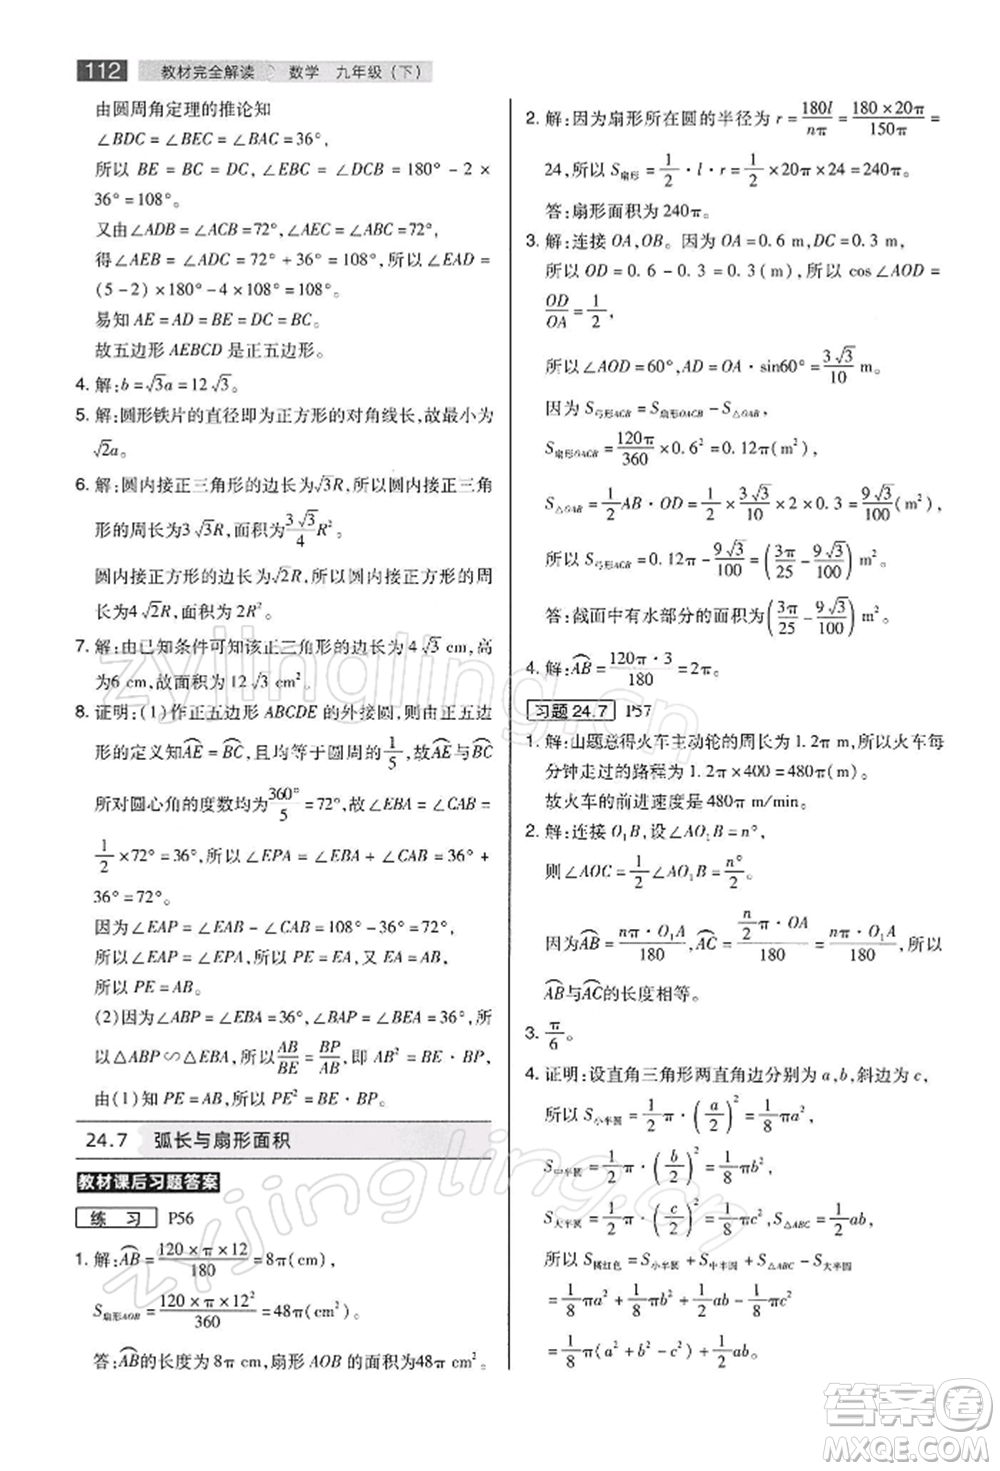 112 教材完全解读 数学 九年级（下）
由圆周角定理的推论知
∠BDC = ∠BEC = ∠BAC = 36°,
所以 BE = BC = DC, ∠BCD = 180° - 2 ×
36° = 108°。
又由∠ADB = ∠ACB = 72°,
得∠AEB = ∠AEC = 72° + 36° = 108° = ∠EAD =
(5 - 2) × 180° - 4 × 108°。
易知 AE = AD = BE = DC = BC。
故五边形 AEBCD 是正五边形。
4. 解: b = √3a = 12√3。
5. 解:圆形铁片的直径即为正方形的对角线长,故最小为
√2a。
6. 解:圆内接正三角形的边长为√3R,所以圆内接正三角
形的周长为3√3R,面积为3√3/4 R²。
圆内接正方形的边长为√2R,所以圆内接正方形的周
长为4√2R,面积为 2R²。
7. 解:由已知条件可知该正三角形的边长为 4√3 cm,高
为6 cm,面积为 12√3 cm²。
8. 证明:(1)作正五边形 ABCDE 的外接圆,则由正五边
形的定义知⌒AE = ⌒BC,且均等于圆周的1/5,故⌒AE与⌒BC
所对圆心角的度数均为360°/5 = 72°,∠EBA = ∠CAB =
1/2 × 72° = 36°,所以∠EPA = ∠EBA + ∠CAB = 36° +
36° = 72°。
因为∠EAP = ∠EAB - ∠CAB = 108° - 36° = 72°,
所以∠EAP = ∠EPA,所以 PE = AE,又 AE = AB,
所以 PE = AB。
(2)因为∠ABP = ∠EBA = 36°,∠BAP = ∠BEA = 36°,所
以△ABP∽△EBA,所以AB/BE = BP/AB,即 AB² = BP · BE,
由(1)可知 PE = AB,所以 PE² = BP · BE。
24.7 弧长与扇形面积
教材课后习题答案
练 习 P56
1. 解:⌒AB = (120 × π × 12)/180 = 8π(cm),
S扇形AOB = (120 × π × 12²)/360 = 48π(cm²)。
答:⌒AB的长度为8π cm,扇形 AOB 的面积为48π cm²。
2. 解:因为扇形所在圆的半径为 r = 180l/nπ = (180 × 20π)/150π =
24,所以 S扇形 = 1/2 · l · r = 1/2 × 20π × 24 = 240π。
答:扇形面积为 240π。
3. 解:连接 OA,OB。因为 OA = 0.6 m,DC = 0.3 m,
所以 OD = 0.6 - 0.3 = 0.3(m),所以 cos∠AOD =
OD/OA = 1/2,
所以∠AOD = 60°,AD = OA · sin60° = 3√3/10 m。
因为 S弓形ACB = S扇形OACB - S△OAB,
S扇形OACB = 120π/360 × 0.6² = 0.12π(m²),
S△OAB = 1/2 AB · OD = 1/2 × 3√3/10 × 2 × 0.3 = 9√3/100(m²),
所以 S弓形ACB = 0.12π - 9√3/100 = (3π/25 - 9√3/100)m²。
答:截面中有水部分的面积为(3π/25 - 9√3/100)m²。
4. 解:⌒AB = (120π · 3)/180 = 2π。
习题 24.7 P57
1. 解:山题意得火车主动轮的周长为 1.2π m,所以火车每
分钟走过的路程为 1.2π × 400 = 480π(m)。
故火车的前进速度是480π m/min。
2. 解:连接 O₁B,设∠AO₁B = n°,
则∠AOC = 1/2∠AO₁B = n°/2。
因为⌒AB = (nπ · O₁A)/180,⌒AC = (n/2 π · OA)/180 = (nπ · O₁A)/180,所以
⌒AB与⌒AC的长度相等。
3. π/6。
4. 证明:设直角三角形两直角边分别为 a,b,斜边为 c,
所以 S小半圆 = 1/2 π · (a/2)² = 1/8 πa²,
S中半圆 = 1/2 π · (b/2)² = 1/8 πb²,
S大半圆 = 1/2 π · (c/2)² = 1/8 πc²,S△ABC = 1/2 ab,
所以 S橘红色 = S小半圆 + S中半圆 + S△ABC - S大半圆
= 1/8 πa² + 1/8 πb² + 1/2 ab - 1/8 πc²
= 1/8 π(a² + b² - c²) + 1/2 ab = 1/2 ab。
zyjingling.cn
zyjingling.cn
答案圈
MXQE.COM